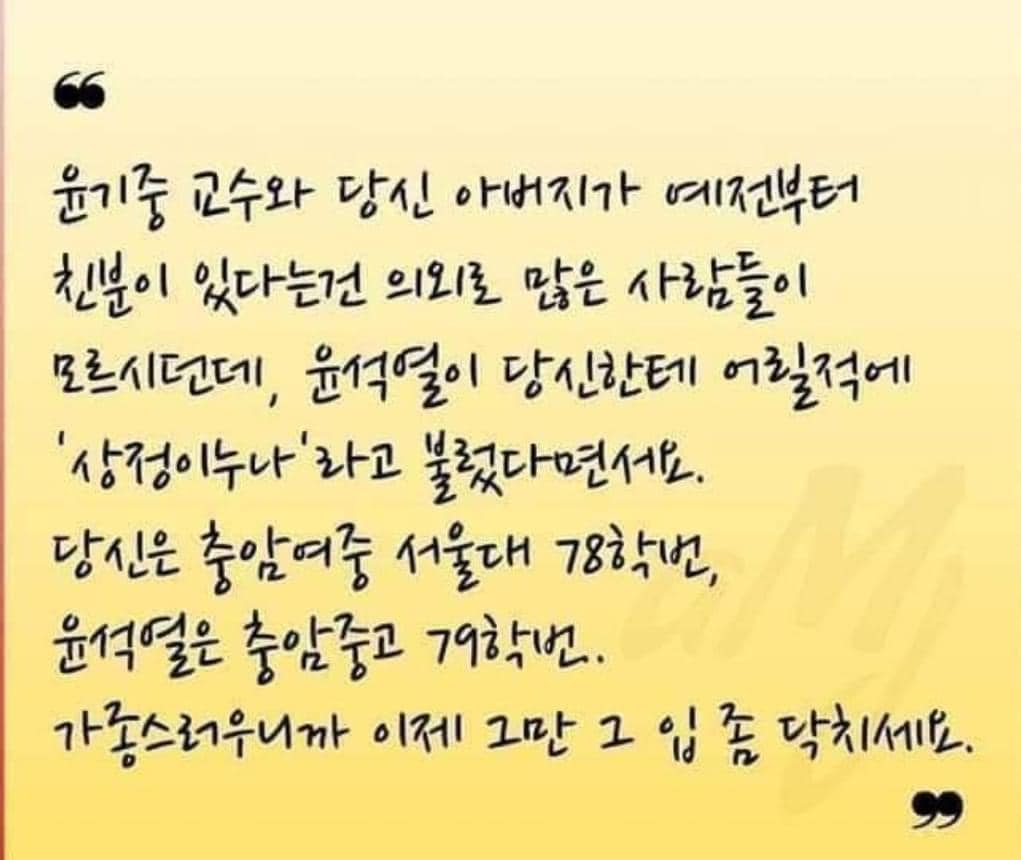 ❝
윤기중 교수와 당신 아버지가 예전부터
친분이 있다는건 의외로 많은 사람들이
모르시던데, 윤석열이 당신한테 어릴적에
'상정이누나'라고 불렀다면서요.
당신은 충암여중 서울대 78학번,
윤석열은 충암중고 79학번.
가종스러우니까 이제 그만 그 입 좀 닥치세요.
❞